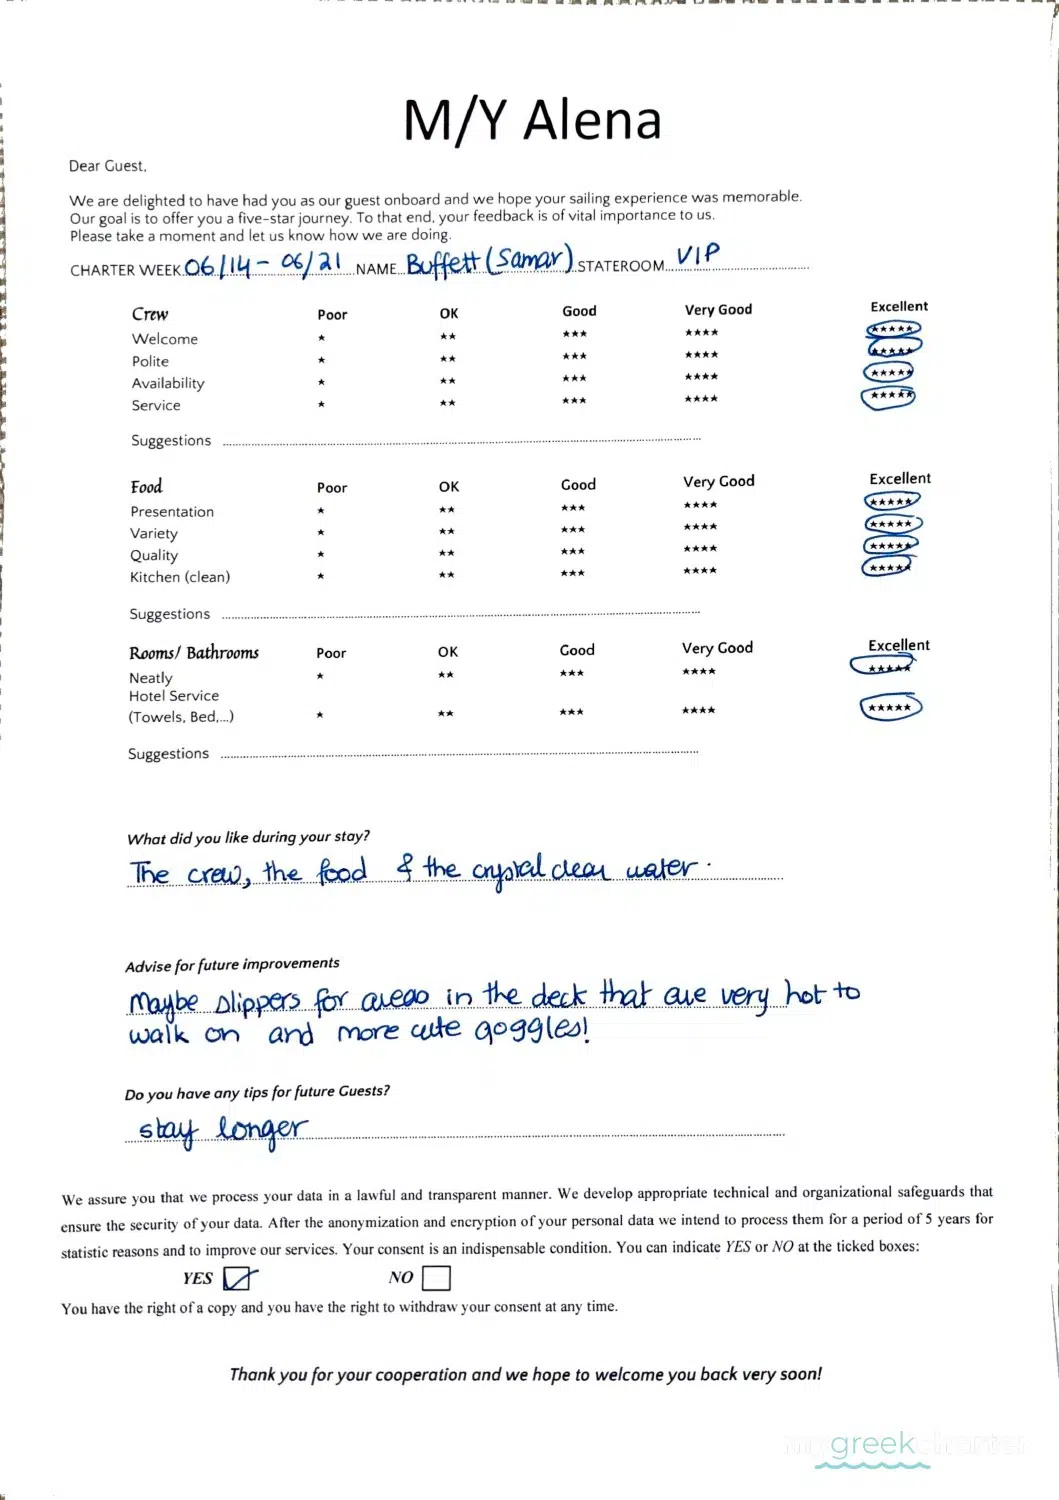 M/Y Alena
Dear Guest,
We are delighted to have had you as our guest onboard and we hope your sailing experience was memorable.
Our goal is to offer you a five-star journey. To that end, your feedback is of vital importance to us.
Please take a moment and let us know how we are doing.
CHARTER WEEK 06/14 - 06/21 NAME Buffett (Samar) STATEROOM VIP
Crew Poor OK Good Very Good Excellent
Welcome * ** *** **** *****
Polite * ** *** **** *****
Availability * ** *** **** *****
Service * ** *** **** *****
Suggestions
Food Poor OK Good Very Good Excellent
Presentation * ** *** **** *****
Variety * ** *** **** *****
Quality * ** *** **** *****
Kitchen (clean) * ** *** **** *****
Suggestions
Rooms/ Bathrooms Poor OK Good Very Good Excellent
Neatly * ** *** **** *****
Hotel Service
(Towels, Bed,...) * ** *** **** *****
Suggestions
What did you like during your stay?
The crew, the food & the crystal clear water.
Advise for future improvements
Maybe slippers for areas in the deck that are very hot to
walk on and more cute goggles!
Do you have any tips for future Guests?
stay longer
We assure you that we process your data in a lawful and transparent manner. We develop appropriate technical and organizational safeguards that
ensure the security of your data. After the anonymization and encryption of your personal data we intend to process them for a period of 5 years for
statistic reasons and to improve our services. Your consent is an indispensable condition. You can indicate YES or NO at the ticked boxes:
YES NO
You have the right of a copy and you have the right to withdraw your consent at any time.
Thank you for your cooperation and we hope to welcome you back very soon!
mygreekcharter